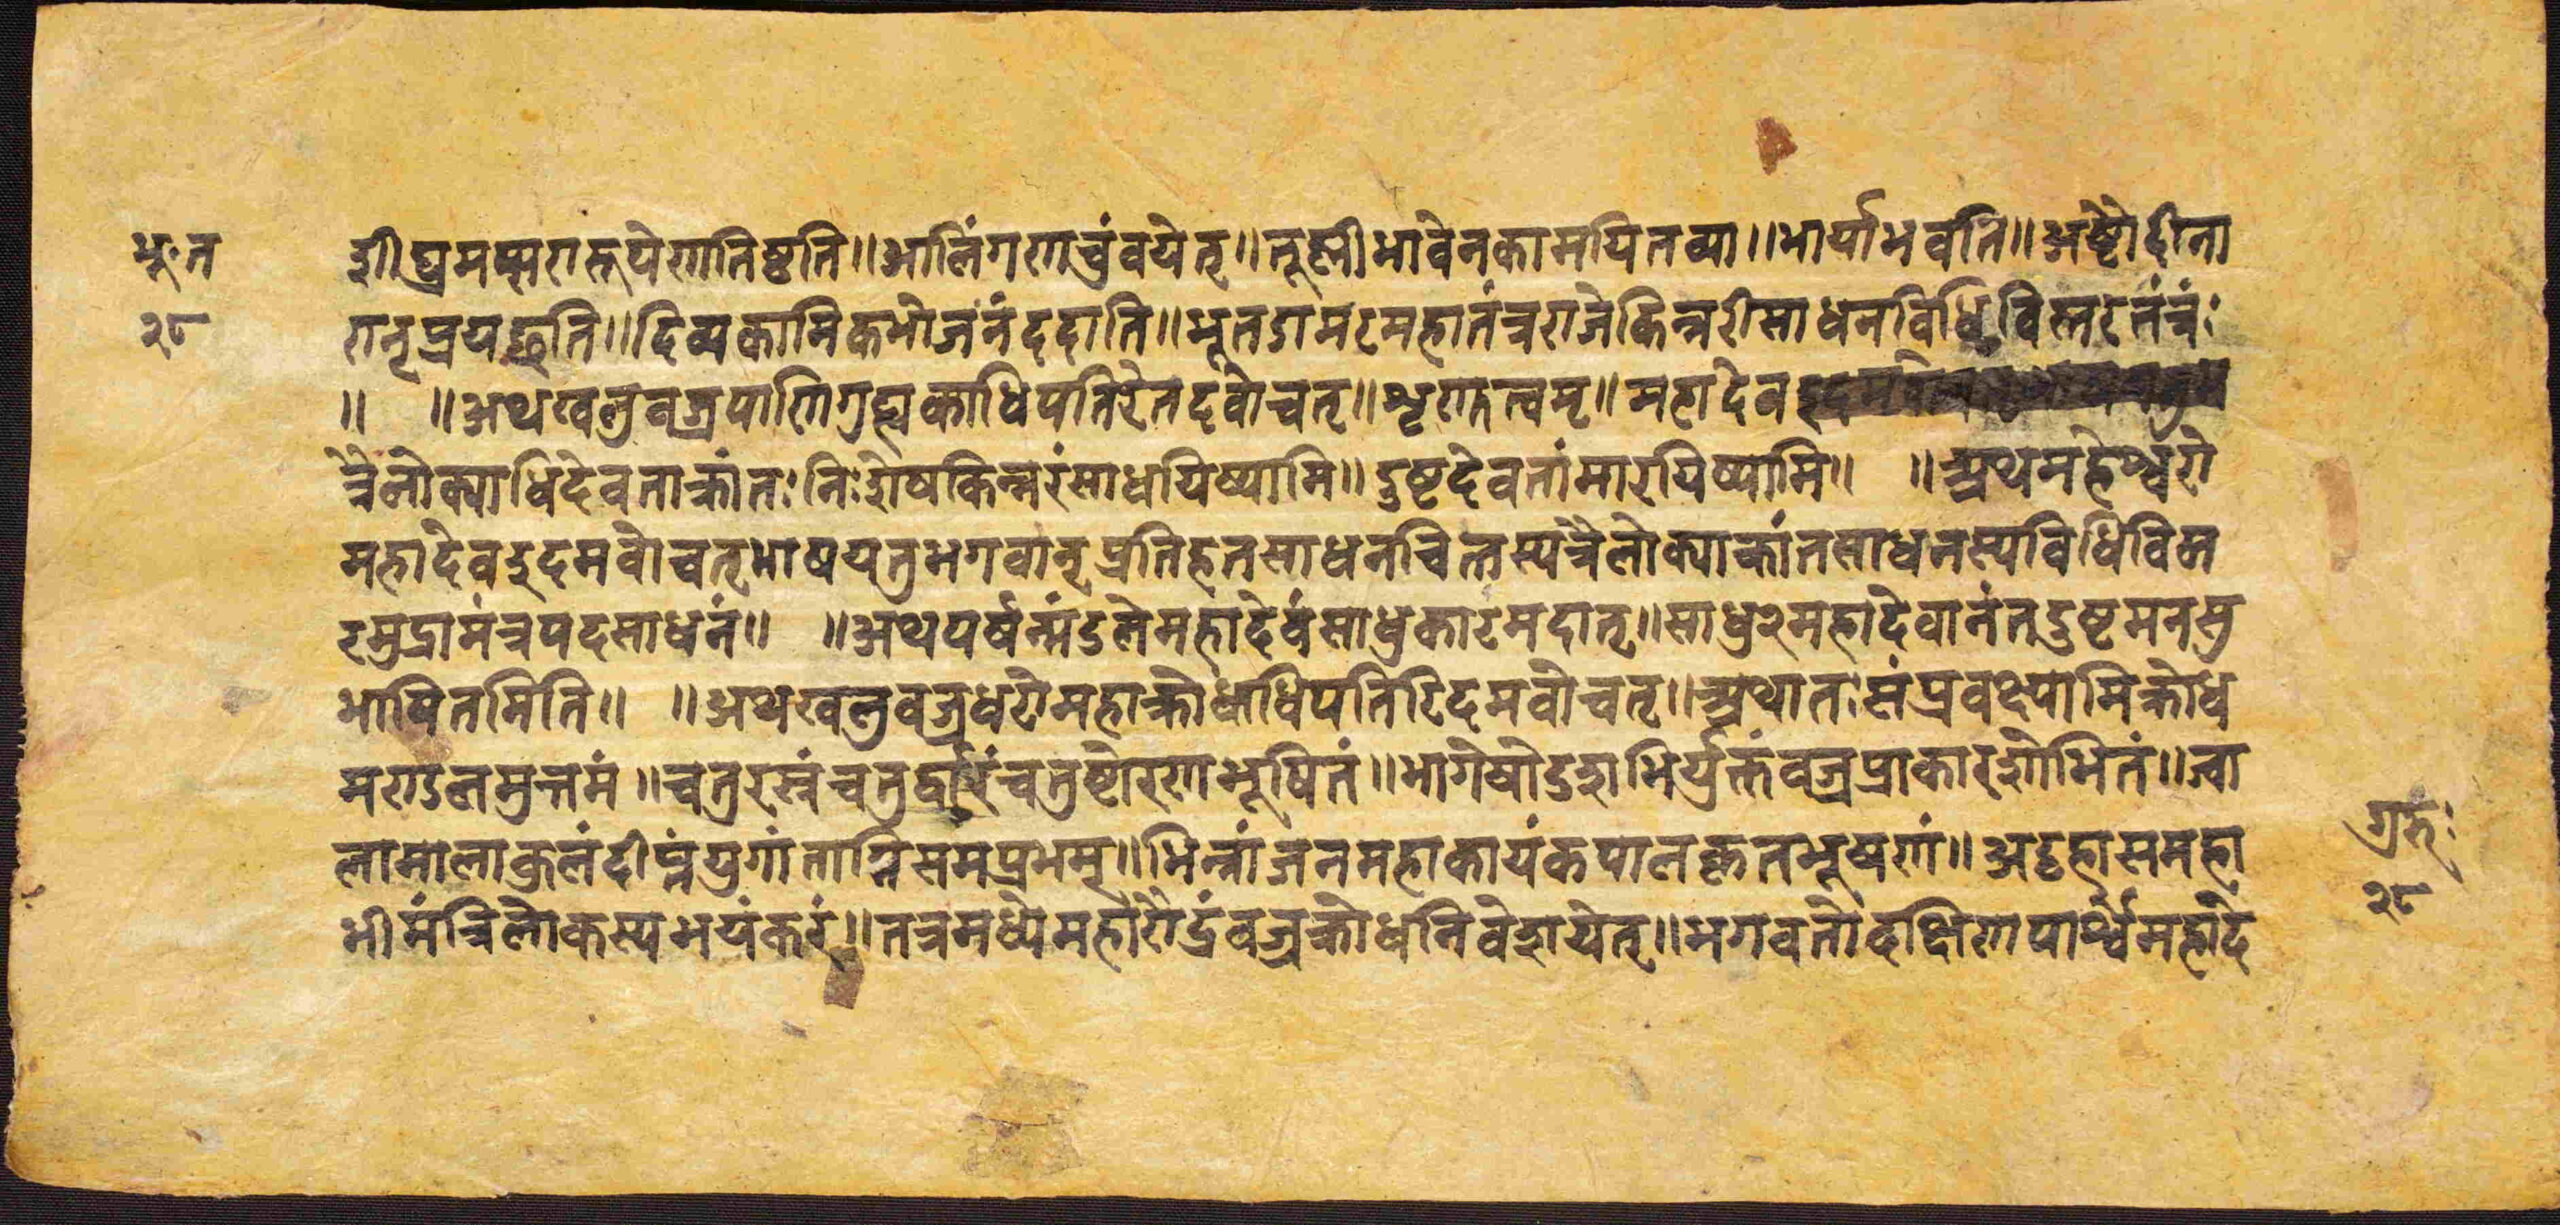 भू॰त
२८
शीघ्रमप्सरारूपेणतिष्ठति॥आलिंगणचुंवयेत्॥तूष्णीभावेनकामयितव्या॥भार्याभवति॥अष्टौदीना
रान्प्रयछति॥दिव्यकामिकभोजनंददाति॥भूतडामरमहातंत्रराजेकिन्नरीसाधनविधिविस्तरतंत्रंः
॥ ॥अथखलुवज्रपाणिगुह्यकाधिपतिरेतदवोचत्॥शृणुतत्वम्॥महादेव
त्रैलोक्याधिदेवताक्रांतःनिःशेषकिन्नरंसाधयिष्यामि॥दुष्टदेवतांमारयिष्यामि॥ ॥अथमहेश्वरो
महादेवइदमवोचत्भाषयतुभगवान्प्रतिहतसाधनचित्तस्यत्रैलोक्याक्रांतसाधनस्यविधिविस्त
रमुद्रामंत्रपदसाधनं॥ ॥अथपर्षन्मंडलेमहादेवंसाधुकारमदात्॥साधु२महादेवानंतदुष्टमनसु
भाषितमिति॥ ॥अथखलुवज्रधरोमहाक्रोधाधिपतिरिदमवोचत्॥अथातःसंप्रवक्ष्यामिक्रोध
मण्डलमुत्तमं॥चतुरस्रंचतुर्द्वारंचतुष्टोरणभूषितं॥भागेषोडशभिर्युक्तंवज्रप्राकारशोभितं॥ज्वा
लामालाकुलंदीप्तंयुगांताग्निसमप्रभम्॥भिन्नांजनमहाकायंकपालकृतभूषणं॥अट्टहासमहा
भीमंत्रिलोकस्यभयंकरं॥तत्रमध्येमहारौद्रंवज्रक्रोधनिवेशयेत्॥भगवतोदक्षिणपार्श्वेमहादे
ग्रहः
२८